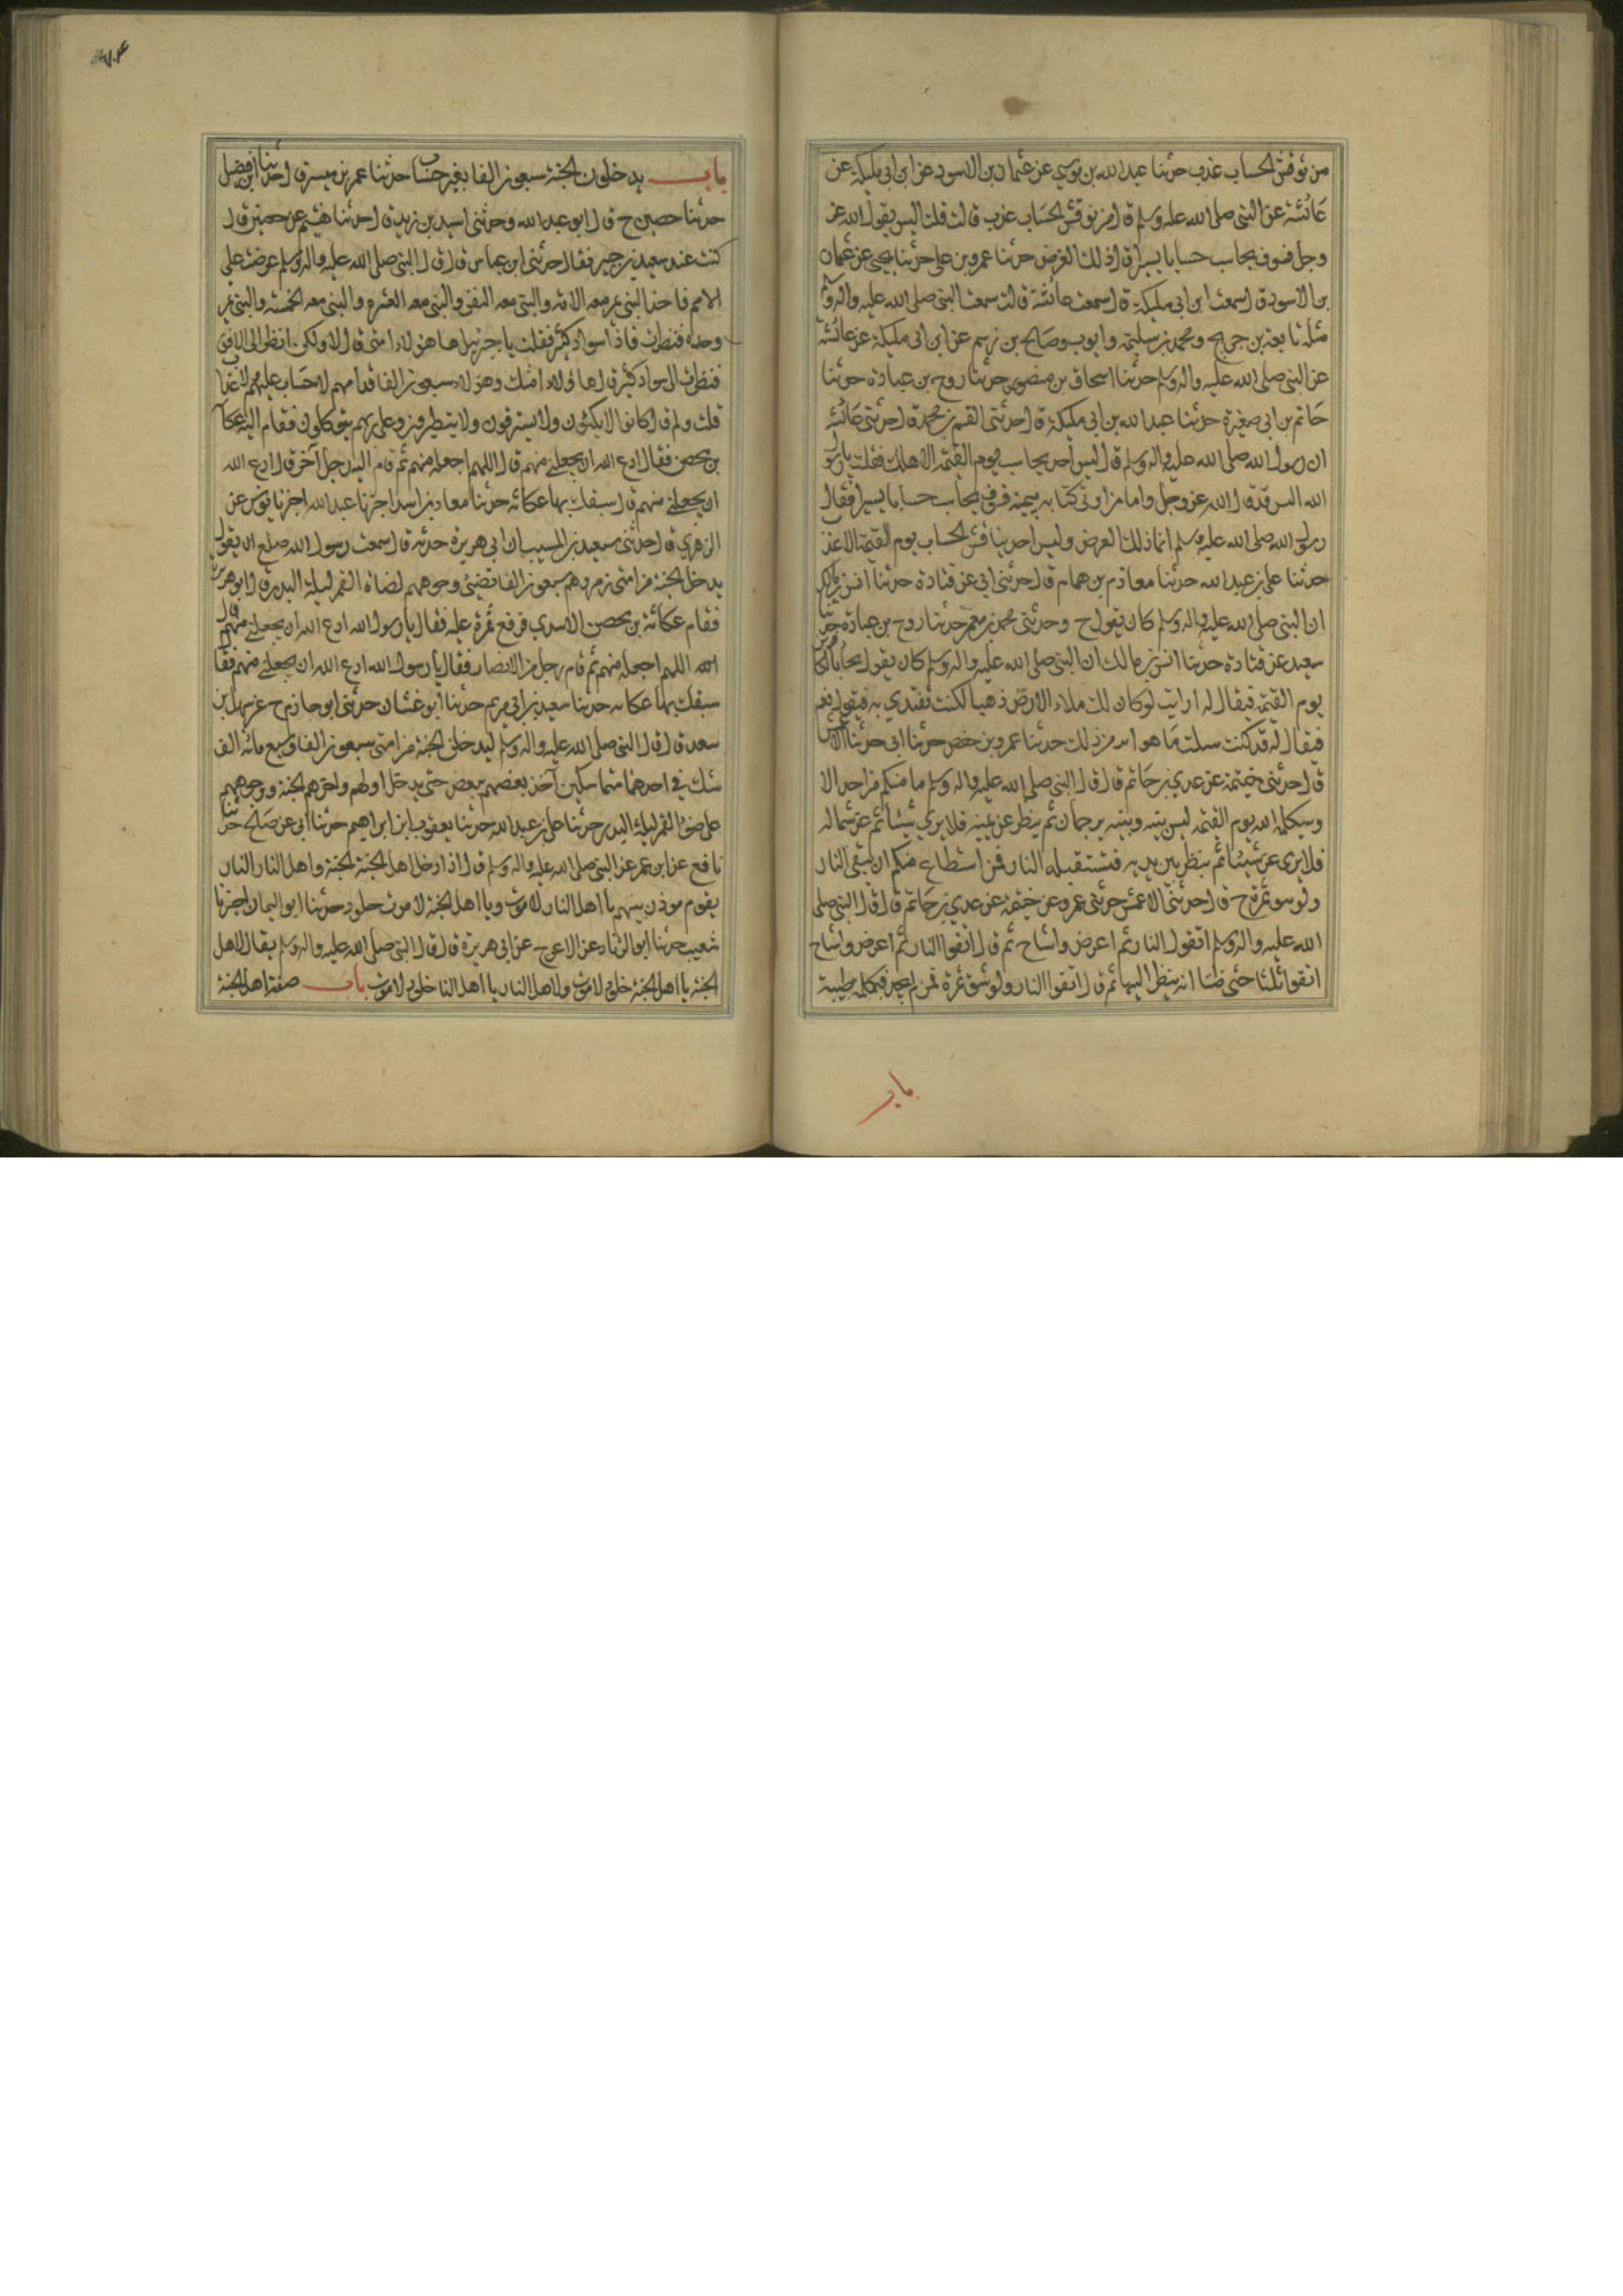 من نوقش الحساب عذب حدثنا عبد الله بن موسي عن عثمان بن الاسود عن ابن ابي مليكة عن
عائشة عن النبي صلى الله عليه وسلم قال من نوقش الحساب عذب قالت قلت اليس يقول الله عز
وجل فسوف يحاسب حسابا يسيرا قال ذلك العرض حدثنا عمرو بن علي حدثنا يحيى عن عثمان
بن الاسود قال سمعت ابن ابي مليكة قال سمعت عائشة قالت سمعت النبي صلى الله عليه واله وسلم
مثله تابعه بن جريج ومحمد بن سليم وايوب وصالح بن رستم عن ابن ابي مليكة عن عائشة
عن النبي صلى الله عليه واله وسلم حدثنا اسحاق بن منصور حدثنا روح بن عبادة حدثنا
حاتم بن ابي صغيرة حدثنا عبد الله بن ابي مليكة قال حدثني القسم بن محمد قال حدثتني عائشة
ان رسول الله صلى الله عليه واله وسلم قال ليس احد يحاسب يوم القيمة الا هلك فقلت يا رسول
الله اليس قد قال الله عز وجل واما من اوتى كتابه بيمينه فسوف يحاسب حسابا يسيرا فقال
رسول الله صلى الله عليه وسلم انما ذلك العرض وليس احد يناقش الحساب يوم القيمة الا عذب
حدثنا علي بن عبد الله حدثنا معاذ بن همام قال حدثني ابي عن قتادة حدثنا انس بن مالك
ان النبي صلى الله عليه واله وسلم كان يقول ح وحدثني محمد بن معمر حدثنا روح بن عبادة حدثنا
سعيد عن قتادة حدثنا انس بن مالك ان النبي صلى الله عليه واله وسلم كان يقول يجاء بالكافر
يوم القيمة فيقال له ارايت لو كان لك ملاء الارض ذهبا لكنت تفتدي به فيقول نعم
فيقال له قد كنت سئلت ما هو ايسر من ذلك حدثنا عمرو بن حفص حدثنا ابي حدثنا الاعمش
قال حدثني خيثمة عن عدي بن حاتم قال قال النبي صلى الله عليه واله وسلم ما منكم من احد الا
وسيكلمه الله يوم القيمة ليس بينه وبينه ترجمان ثم ينظر عن يمينه فلا يرى شيئا ثم عن شماله
فلا يرى عن شيئا ثم ينظر بين يديه فتستقبله النار فمن استطاع منكم ان يتقى النار
ولو بشق تمرة ح قال حدثني الاعمش حدثني عمرو عن خيثمة عن عدي بن حاتم قال قال النبي صلى
الله عليه واله وسلم اتقوا النار ثم اعرض واشاح ثم قال اتقوا النار ثم اعرض واشاح
اتقوا ثلثا حتى ظننا انه ينظر اليها ثم قال اتقوا النار ولو بشق تمرة فمن لم يجد فبكلمة طيبة
باب
باب يدخلون الجنة سبعون الفا بغير حساب حدثنا عمر بن ميسرة قال حدثنا ابن فضيل
حدثنا حصين ح قال ابو عبد الله وحدثني اسيد بن زيد قال حدثنا هشيم عن حصين قال
كنت عند سعيد بن جبير فقال حدثني ابن عباس قال قال النبي صلى الله عليه واله وسلم عرضت على
الامم فاخذ النبي يمر معه الامة والنبي معه النفر والنبي معه العشرة والنبي معه الخمسة والنبي يمر
وحده فنظرت فاذا سواد كثير فقلت يا جبرئيل هاهؤلاء امتى قال لا ولكن انظر الى الافق
فنظرت الى سواد كثير قال هاولاء امتك وهولاء سبعون الفا قدامهم لا حساب عليهم ولا عذاب
قلت ولم قال كانوا لا يكتوون ولا يسترقون ولا يتطيرون وعلى ربهم يتوكلون فقام اليه عكاشة
بن محصن فقال ادع الله ان يجعلني منهم قال اللهم اجعله منهم ثم قام اليه رجل آخر قال ادع الله
ان يجعلني منهم قال سبقك بها عكاشه حدثنا معاذ بن اسد اخبرنا عبد الله اخبرنا يونس عن
الزهري قال حدثني سعيد بن المسيب ان ابي هريرة حدثه قال سمعت رسول الله صلعم ان يقول
يدخل الجنة من امتى زمر وهم سبعون الفا تضيئ وجوههم لضاة القمر ليلة البدر قال ابو هريرة
فقام عكاشة بن محصن الاسدي يرفع نمرة عليه فقال يا رسول الله ادع الله ان يجعلني منهم قال
الله اللهم اجعله منهم ثم قام رجل من الانصار فقال يا رسول الله ادع الله ان يجعلني منهم فقال
سبقك بها عكاشه حدثنا سعيد بن ابي مريم حدثنا ابو غسان حدثني ابو حازم ح عن سهل بن
سعد قال قال النبي صلى الله عليه واله وسلم ليدخلن الجنة من امتى سبعون الفا وسبع مائة الف
شك في احدهما متماسكين آخذ بعضهم ببعض حتى يدخل اولهم واخرهم الجنة ووجوههم
على ضوء القمر ليلة البدر حدثنا علي بن عبد الله حدثنا يعقوب ابن ابراهيم حدثنا ابي عن صالح حدثنا
نافع عن ابن عمر عن النبي صلى الله عليه واله وسلم قال اذا دخل اهل الجنة الجنة واهل النار النار
يقوم موذن بينهم يا اهل النار لا موت ويا اهل الجنة لا موت خلود حدثنا ابو اليمان اخبرنا
شعيب حدثنا ابو الزناد عن الاعرج عن ابي هريرة قال قال النبي صلى الله عليه واله وسلم يقال لاهل
الجنة يا اهل الجنة خلود لا موت ولاهل النار يا اهل النار خلود لا موت باب صفة اهل الجنة